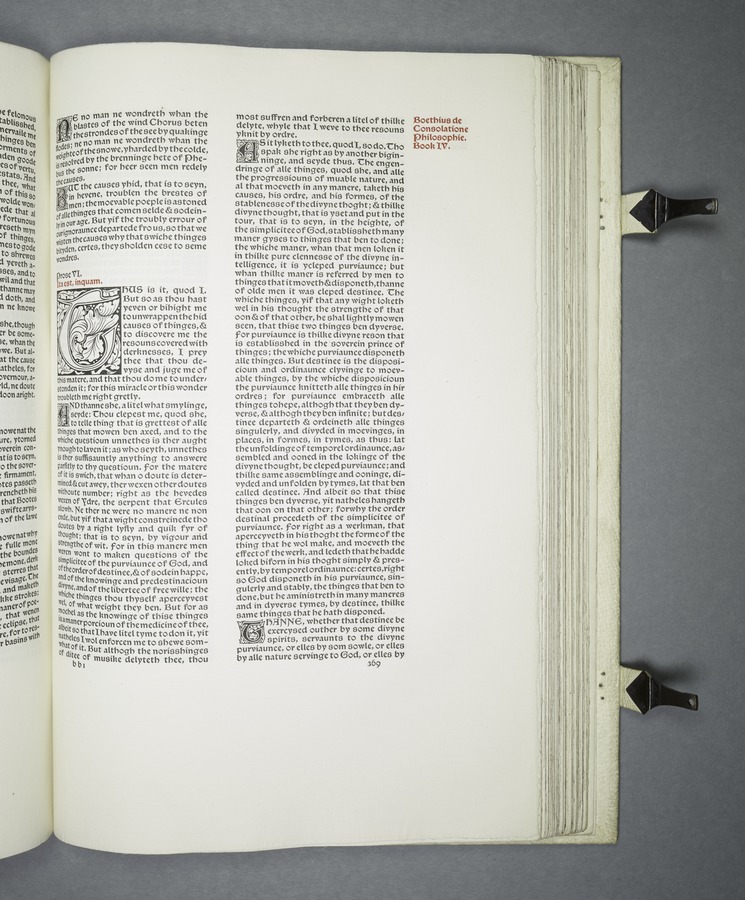 NE no man ne wondreth whan the
blastes of the wind Chorus beten
the strondes of the see by quakinge
flodes; ne no man ne wondreth whan the
weighte of the snowe, yharded by the colde,
is resolved by the brenninge hete of Phe-
bus the sonne; for heer seen men redely
the causes.
BUT the causes yhid, that is to seyn,
in hevene, troublen the brestes of
men; the moevable poeple is astoned
of alle thinges that comen selde & sodein-
ly in our age. But yif the troubly errour of
our ignoraunce departede fro us, so that we
wisten the causes why that swiche thinges
bityden, certes, they sholden cese to seme
wondres.
Prose VI.
Ita est, inquam.
THUS is it, quod I.
But so as thou hast
yeven or bihight me
to unwrappen the hid
causes of thinges, &
to discovere me the
resouns covered with
derknesses, I prey
thee that thou de-
vyse and juge me of
this matere, and that thou do me to under-
stonden it; for this miracle or this wonder
troubleth me right gretly.
AND thanne she, a litel what smylinge,
seyde: Thou clepest me, quod she,
to telle thing that is grettest of alle
thinges that mowen ben axed, and to the
whiche questioun unnethes is ther aught
ynough to laven it; as who seyth, unnethes
is ther suffisauntly anything to answere
parfitly to thy questioun. For the matere
of it is swich, that whan o doute is deter-
mined & cut awey, ther wexen other doutes
withoute number; right as the hevedes
wexen of Ydre, the serpent that Ercules
slowh. Ne ther ne were no manere ne non
ende, but yif that a wight constreinede tho
doutes by a right lyfly and quik fyr of
thought; that is to seyn, by vigour and
strengthe of wit. For in this manere men
weren wont to maken questions of the
simplicitee of the purviaunce of God, and
of the order of destinee, & of sodein happe,
and of the knowinge and predestinacioun
divyne, and of the libertee of free wille; the
whiche thinges thou thyself aperceyvest
wel, of what weight they ben. But for as
mochel as the knowinge of thise thinges
is a maner porcioun of the medicine of thee,
albeit so that I have litel tyme to don it, yit
natheles I wol enforcen me to shewe som-
what of it. But although the norisshinges
of ditee of musike delyteth thee, thou
bb1
most suffren and forberen a litel of thilke
delyte, whyle that I weve to thee resouns
yknit by ordre.
AS it lyketh to thee, quod I, so do. Tho
spak she right as by another bigin-
ninge, and seyde thus. The engen-
dringe of alle thinges, quod she, and alle
the progressiouns of muable nature, and
al that moeveth in any manere, taketh his
causes, his ordre, and his formes, of the
stablenesse of the divyne thoght; & thilke
divyne thought, that is yset and put in the
tour, that is to seyn, in the heighte, of
the simplicitee of God, stablissheth many
maner gyses to thinges that ben to done;
the whiche maner, whan that men loken it
in thilke pure clennesse of the divyne in-
telligence, it is ycleped purviaunce; but
whan thilke maner is referred by men to
thinges that it moveth & disponeth, thanne
of olde men it was cleped destinee. The
whiche thinges, yif that any wight loketh
wel in his thought the strengthe of that
oon & of that other, he shal lightly mowen
seen, that thise two thinges ben dyverse.
For purviaunce is thilke divyne reson that
is establisshed in the soverein prince of
thinges; the whiche purviaunce disponeth
alle thinges. But destinee is the disposi-
cioun and ordinaunce clyvinge to moev-
able thinges, by the whiche disposicioun
the purviaunce knitteth alle thinges in hir
ordres; for purviaunce embraceth alle
thinges to hepe, althogh that they ben dy-
verse, & althogh they ben infinite; but des-
tinee departeth & ordeineth alle thinges
singulerly, and divyded in moevinges, in
places, in formes, in tymes, as thus: lat
the unfoldinge of temporel ordinaunce, as-
sembled and ooned in the lokinge of the
divyne thought, be cleped purviaunce; and
thilke same assemblinge and ooninge, di-
vyded and unfolden by tymes, lat that ben
called destinee. And albeit so that thise
thinges ben dyverse, yit natheles hangeth
that oon on that other; forwhy the order
destinal procedeth of the simplicitee of
purviaunce. For right as a werkman, that
aperceyveth in his thoght the forme of the
thing that he wol make, and moeveth the
effect of the werk, and ledeth that he hadde
loked biforn in his thoght simply & pres-
ently, by temporel ordinaunce: certes, right
so God disponeth in his purviaunce, sin-
gulerly and stably, the thinges that ben to
done, but he aministreth in many maneres
and in dyverse tymes, by destinee, thilke
same thinges that he hath disponed.
THANNE, whether that destinee be
exercysed outher by some divyne
spirits, servaunts to the divyne
purviaunce, or elles by som sowle, or elles
by alle nature servinge to God, or elles by
369
Boethius de
Consolatione
Philosophie.
Book IV.